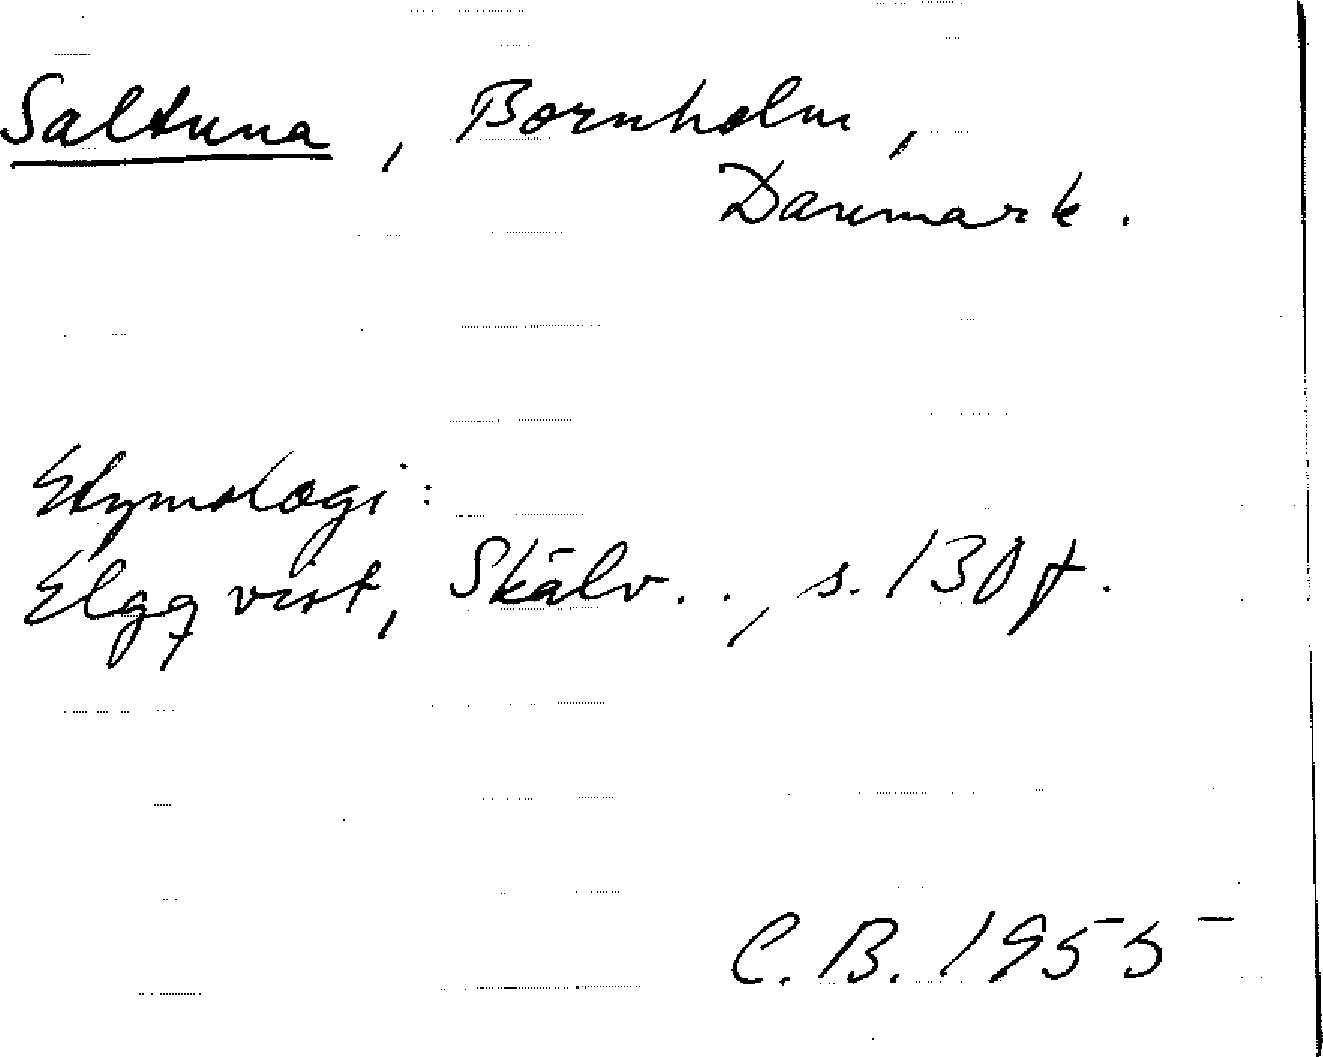 Saltuna, Bornholm,
Danmark.
Etymologi:
Elgqvist, Skälv.., s. 130 f.
C.B. 1955